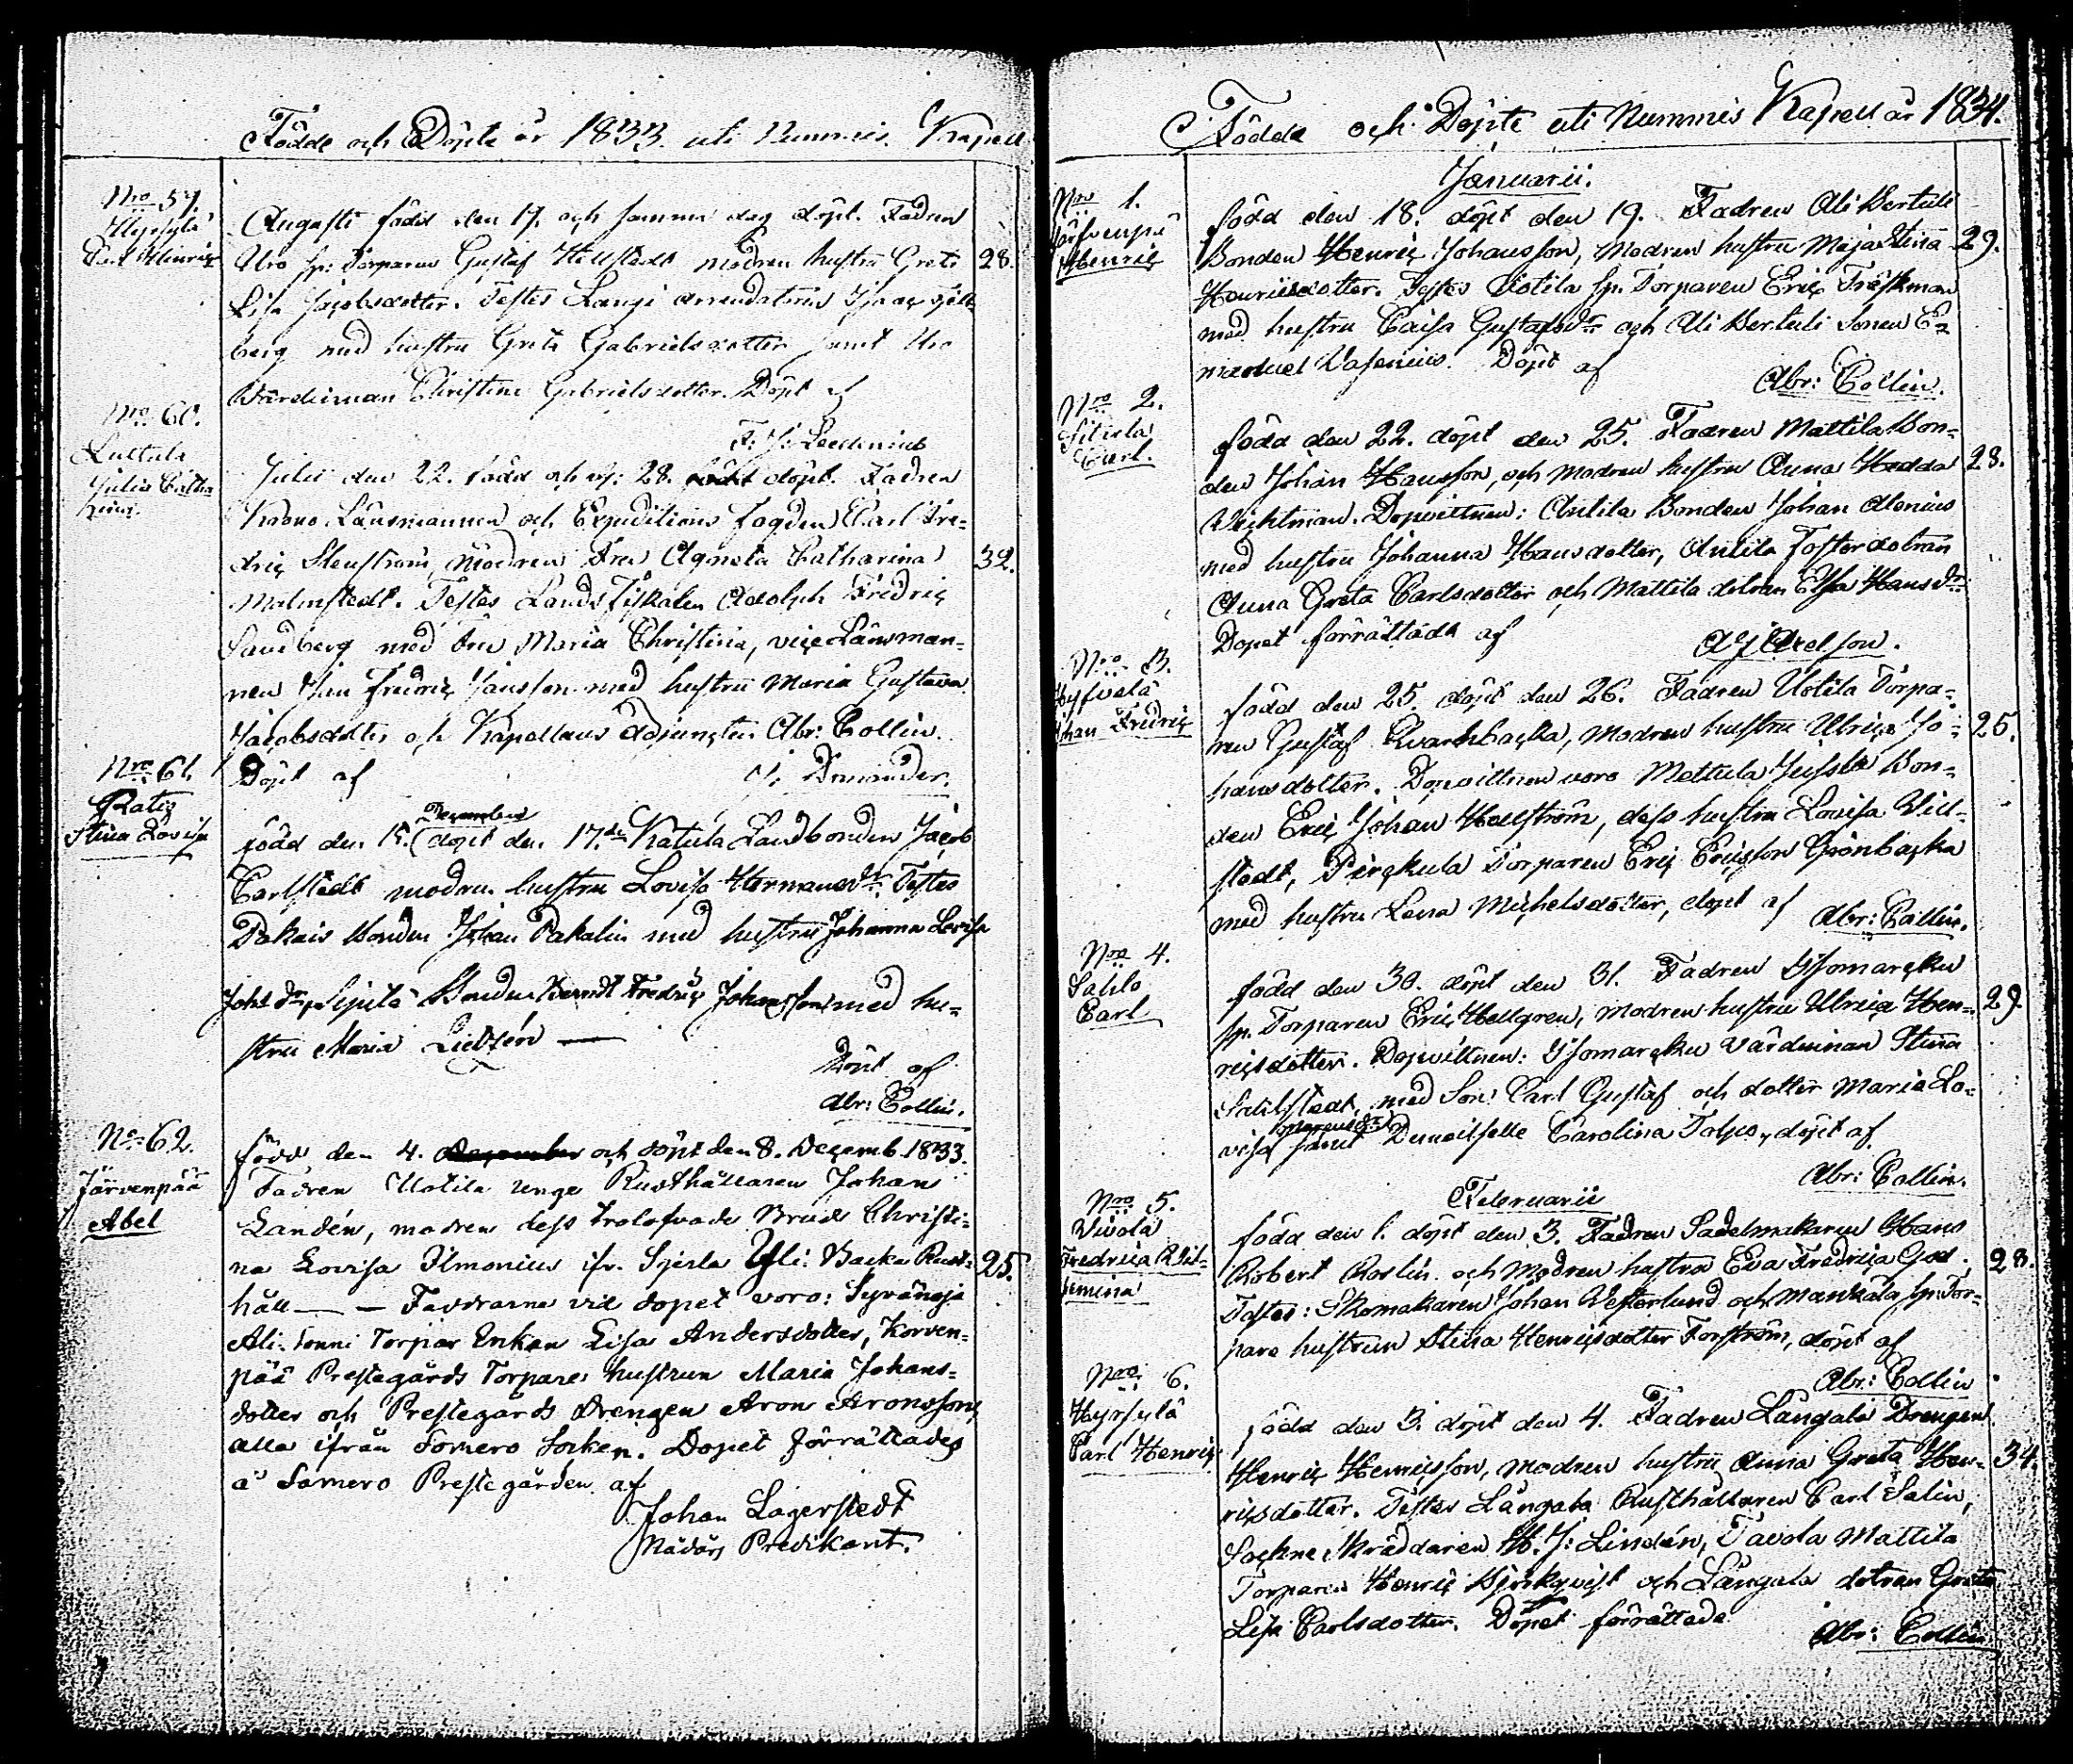 Födde och Döpte år 1833 uti Nummis Kapell
Nro 59.
Hyrsylä
Carl Henric
Augusti född den 17. och samma dag döpt. Fadren
Uro sp: Torparen Gustaf Hellstedt modren hustru Greta 28.
Lisa Jacobsdotter. Testes Langi arrendatorn Isaac Sjöld
berg med hustru Greta Gabrielsdotter samt Uro
Värdinnan Christina Gabrielsdotter. Döpt af
F: J: Leclenius
Nro 60.
Luttula
Julia Catha
rina.
Julii den 22. född och dp: 28. döpt. Fadren
Krono Länsmannen och Expeditions Fogden Carl Fre-
dric Stenström, modren Fru Agneta Catharina 32.
Malmstedt. Testes Lands Fiskalen Adolph Fredric
Sandberg med Fru Maria Christina, viçe Länsman-
nen Jan Fredric Jansson med hustru Maria Gustava
Jacobsdotter och Kapellans Adjuncten Abr: Collin.
Döpt af
Nro 61.
Stina Lovisa
December
född den 15. döpt den 17.de Katula Landbonden Jacob
Carlstedt modren hustru Lovisa Hermansdr. Testes
Pakais Bonden Johan Pakalin med hustru Johanna Lovisa
Johs dr, Sejtilä Bonden Berndt Fredric Johansson med hu-
stru Maria Lietzén —
Döpt af
Abr: Collin.
No 62.
Järvenpää
Abel
född den 4. December och döpt den 8. Decemb. 1833.
Fadren Uotila unge Rusthållaren Johan
Landén, modren dess trolofvade Brud Christi-
na Lovisa Ilmonius ifr. Sjerla Yli: Backa Rust- 25.
håll — — Faddrarne vid dopet voro: Syvänoja
Ali-tonni Torpar Enkan Lisa Andersdotter, Korven-
pää Prestegårds Torpare hustrun Maria Johans-
dotter och Prestegårds Drengen Aron Aronsson,
alla ifrån Somero Socken. Dopet förrättades
å Somero Prestegården af
Johan Lagerstedt
Nådårs Predikant.
Födde och Döpte uti Nummis Kapell år 1834.
Januarii.
Nro 1.
Järfvenpä
Henric
född den 18. döpt den 19. Fadren Ali Kertuli
Bonden Henric Johansson, Modren hustru Maja Stina 29.
Henricsdotter. Testes Uotila sp. Torparen Eric Träskman
med hustru Caisa Gustafsdr och Ali Kertuli Sonen E-
manuel Vasenius. Döpt af
Abr: Collin.
Nro 2.
Sitisla
Carl.
född den 22. döpt den 25. Fadren Mattila Bon-
den Johan Hansson, och modren hustru Anna Hedda 28.
Wichtman. Dopvittnen: Antila Bonden Johan Alenius
med hustru Johanna Hansdotter, Antila Fosterdotran
Anna Greta Carlsdotter och Mattila dotran Elsa Hansdr
Dopet förrättade af
A J Axelson.
Nro 3.
Hyfvelä
Johan Fredric
född den 25. döpt den 26. Fadren Uotila Torpa-
ren Gustaf Kvarnbacka, modren hustru Ulrica Jo- 25.
hansdotter. Dopvittnen voro Mettula Jussila Bon-
den Eric Johan Hellström, dess hustru Lovisa Vid-
stedt, Pirckula Torparen Eric Ericsson Grönbacka
med hustru Lena Michelsdotter, döpt af Abr: Collin.
Nro 4.
Salilo
Carl
född den 30. döpt den 31. Fadren Isomarcku
sp. Torparen Eric Hellgren, modren hustru Ulrica Hen- 29
ricsdotter. Dopvittnen: Isomarcku Värdinnan Stina
Sahlstedt, med Son Carl Gustaf och dotter Maria Lo-
visa samt Demoiselle Carolina Tolpo, döpt af
Abr: Collin.
Februarii
Nro 5.
Vivola
Fredrica Wil-
hemina
född den 1. döpt den 3. Fadren Sadelmakaren Hans
Robert Roslin och Modren hustru Eva Fredrica God. 28.
Testes: Skomakaren Johan Westerlund och Mankala sp. Tor-
pare hustrun Stina Henricsdotter Forström, döpt af
Abr: Collin
Nro 6.
Hyrsylä
Carl Henric
född den 3. döpt den 4. Fadren Långala Drengen
Henric Henricsson, modren hustru Anna Greta Hen- 34.
ricsdotter. Testes Långala Rusthållaren Carl Salin,
Sockne Skräddaren H. J: Lindén, Tavola Mattila
Torparen Henric Björkqvist och Långala dotran Greta
Lisa Carlsdotter. Dopet förrättade
Abr: Collin